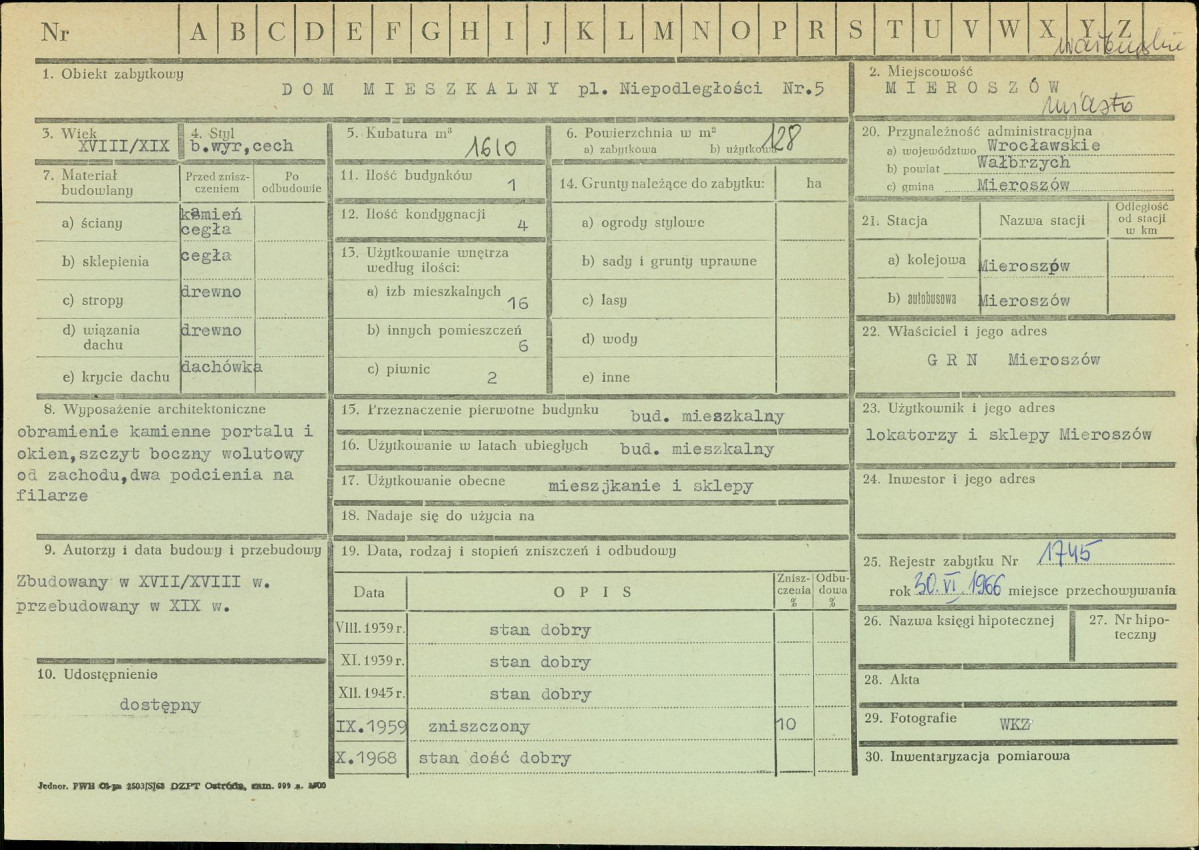 Nr A B C D E F G H I J K L M N O P R S T U V W X Y Z
1. Obiekt zabytkowy
DOM MIESZKALNY pl. Niepodległości Nr.5
2. Miejscowość
MIEROSZÓW
miasto
3. Wiek
XVIII/XIX
4. Styl
b.wyr,cech
5. Kubatura m³
1610
6. Powierzchnia w m²
a) zabytkowa b) użytkowa
128
7. Materiał budowlany
Przed zniszczeniem
Po odbudowie
a) ściany
kamień
cegła
b) sklepienia
cegła
c) stropy
drewno
d) wiązania dachu
drewno
e) krycie dachu
dachówka
11. Ilość budynków
1
12. Ilość kondygnacji
4
13. Użytkowanie wnętrza
według ilości:
a) izb mieszkalnych
16
b) innych pomieszczeń
6
c) piwnic
2
14. Grunty należące do zabytku:
ha
a) ogrody stylowe
b) sady i grunty uprawne
c) lasy
d) wody
e) inne
20. Przynależność administracyjna
a) województwo Wrocławskie
b) powiat Wałbrzych
c) gmina Mieroszów
21. Stacja
Nazwa stacji
Odległość
od stacji
w km
a) kolejowa Mieroszpw
b) autobusowa Mieroszów
22. Właściciel i jego adres
G R N Mieroszów
8. Wyposażenie architektoniczne
obramienie kamienne portalu i
okien,szczyt boczny wolutowy
od zachodu,dwa podcienia na
filarze
15. Przeznaczenie pierwotne budynku bud. mieszkalny
16. Użytkowanie w latach ubiegłych bud. mieszkalny
17. Użytkowanie obecne mieszjkanie i sklepy
18. Nadaje się do użycia na
23. Użytkownik i jego adres
lokatorzy i sklepy Mieroszów
24. Inwestor i jego adres
9. Autorzy i data budowy i przebudowy
Zbudowany w XVII/XVIII w.
przebudowany w XIX w.
10. Udostępnienie
dostępny
19. Data, rodzaj i stopień zniszczeń i odbudowy
Data
OPIS
Zniszczenia %
Odbudowa %
VIII. 1939 r. stan dobry
XI. 1939 r. stan dobry
XII. 1945 r. stan dobry
IX.1959 zniszczony 10
X.1968 stan dość dobry
25. Rejestr zabytku Nr 1745
rok 30.VI.1966 miejsce przechowywania
26. Nazwa księgi hipotecznej
27. Nr hipoteczny
28. Akta
29. Fotografie WKZ
30. Inwentaryzacja pomiarowa
DZPT Ostróda, zam.